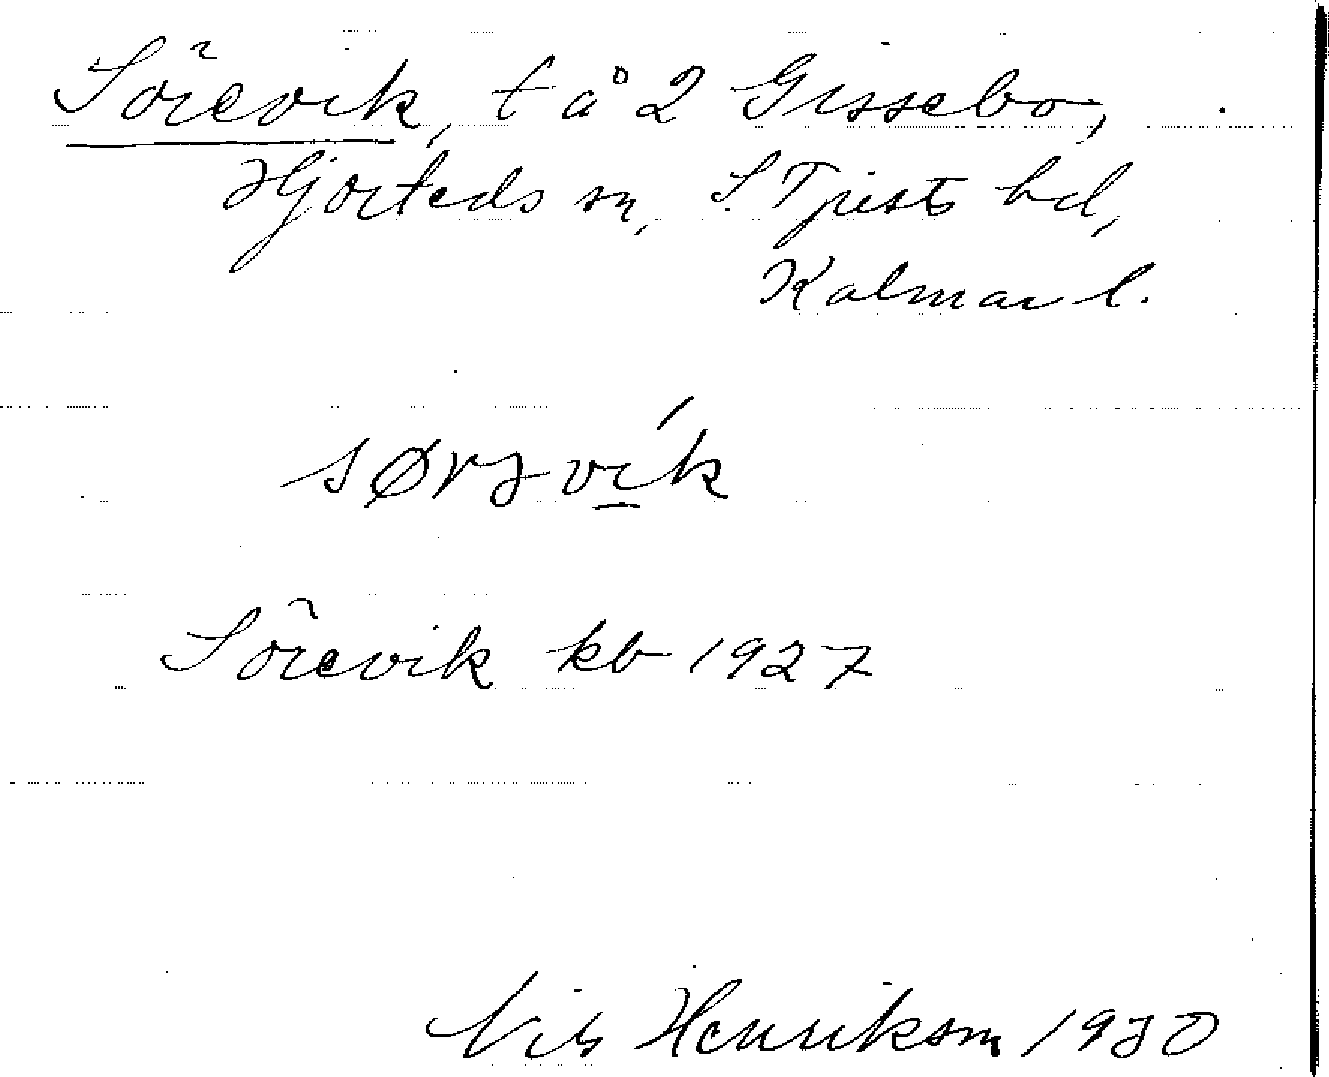 Sörevik, t å 2 Gissebo,
Hjorteds sn, S. Tjusts hd,
Kalmar l.
sørəvík
Sörevik kb 1927
Nils Henriksson 1930